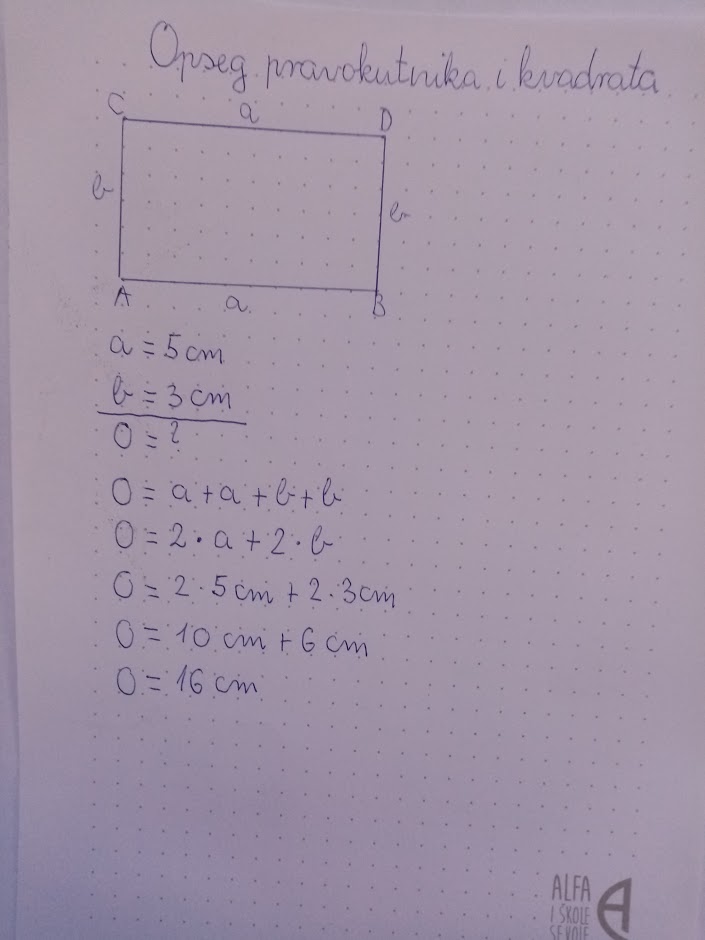 Opseg pravokutnika i kvadrata
C a D
b b
A a B
a = 5 cm
b = 3 cm
O = ?
O = a + a + b + b
O = 2 · a + 2 · b
O = 2 · 5 cm + 2 · 3 cm
O = 10 cm + 6 cm
O = 16 cm
ALFA
I ŠKOLE
SE VOLE